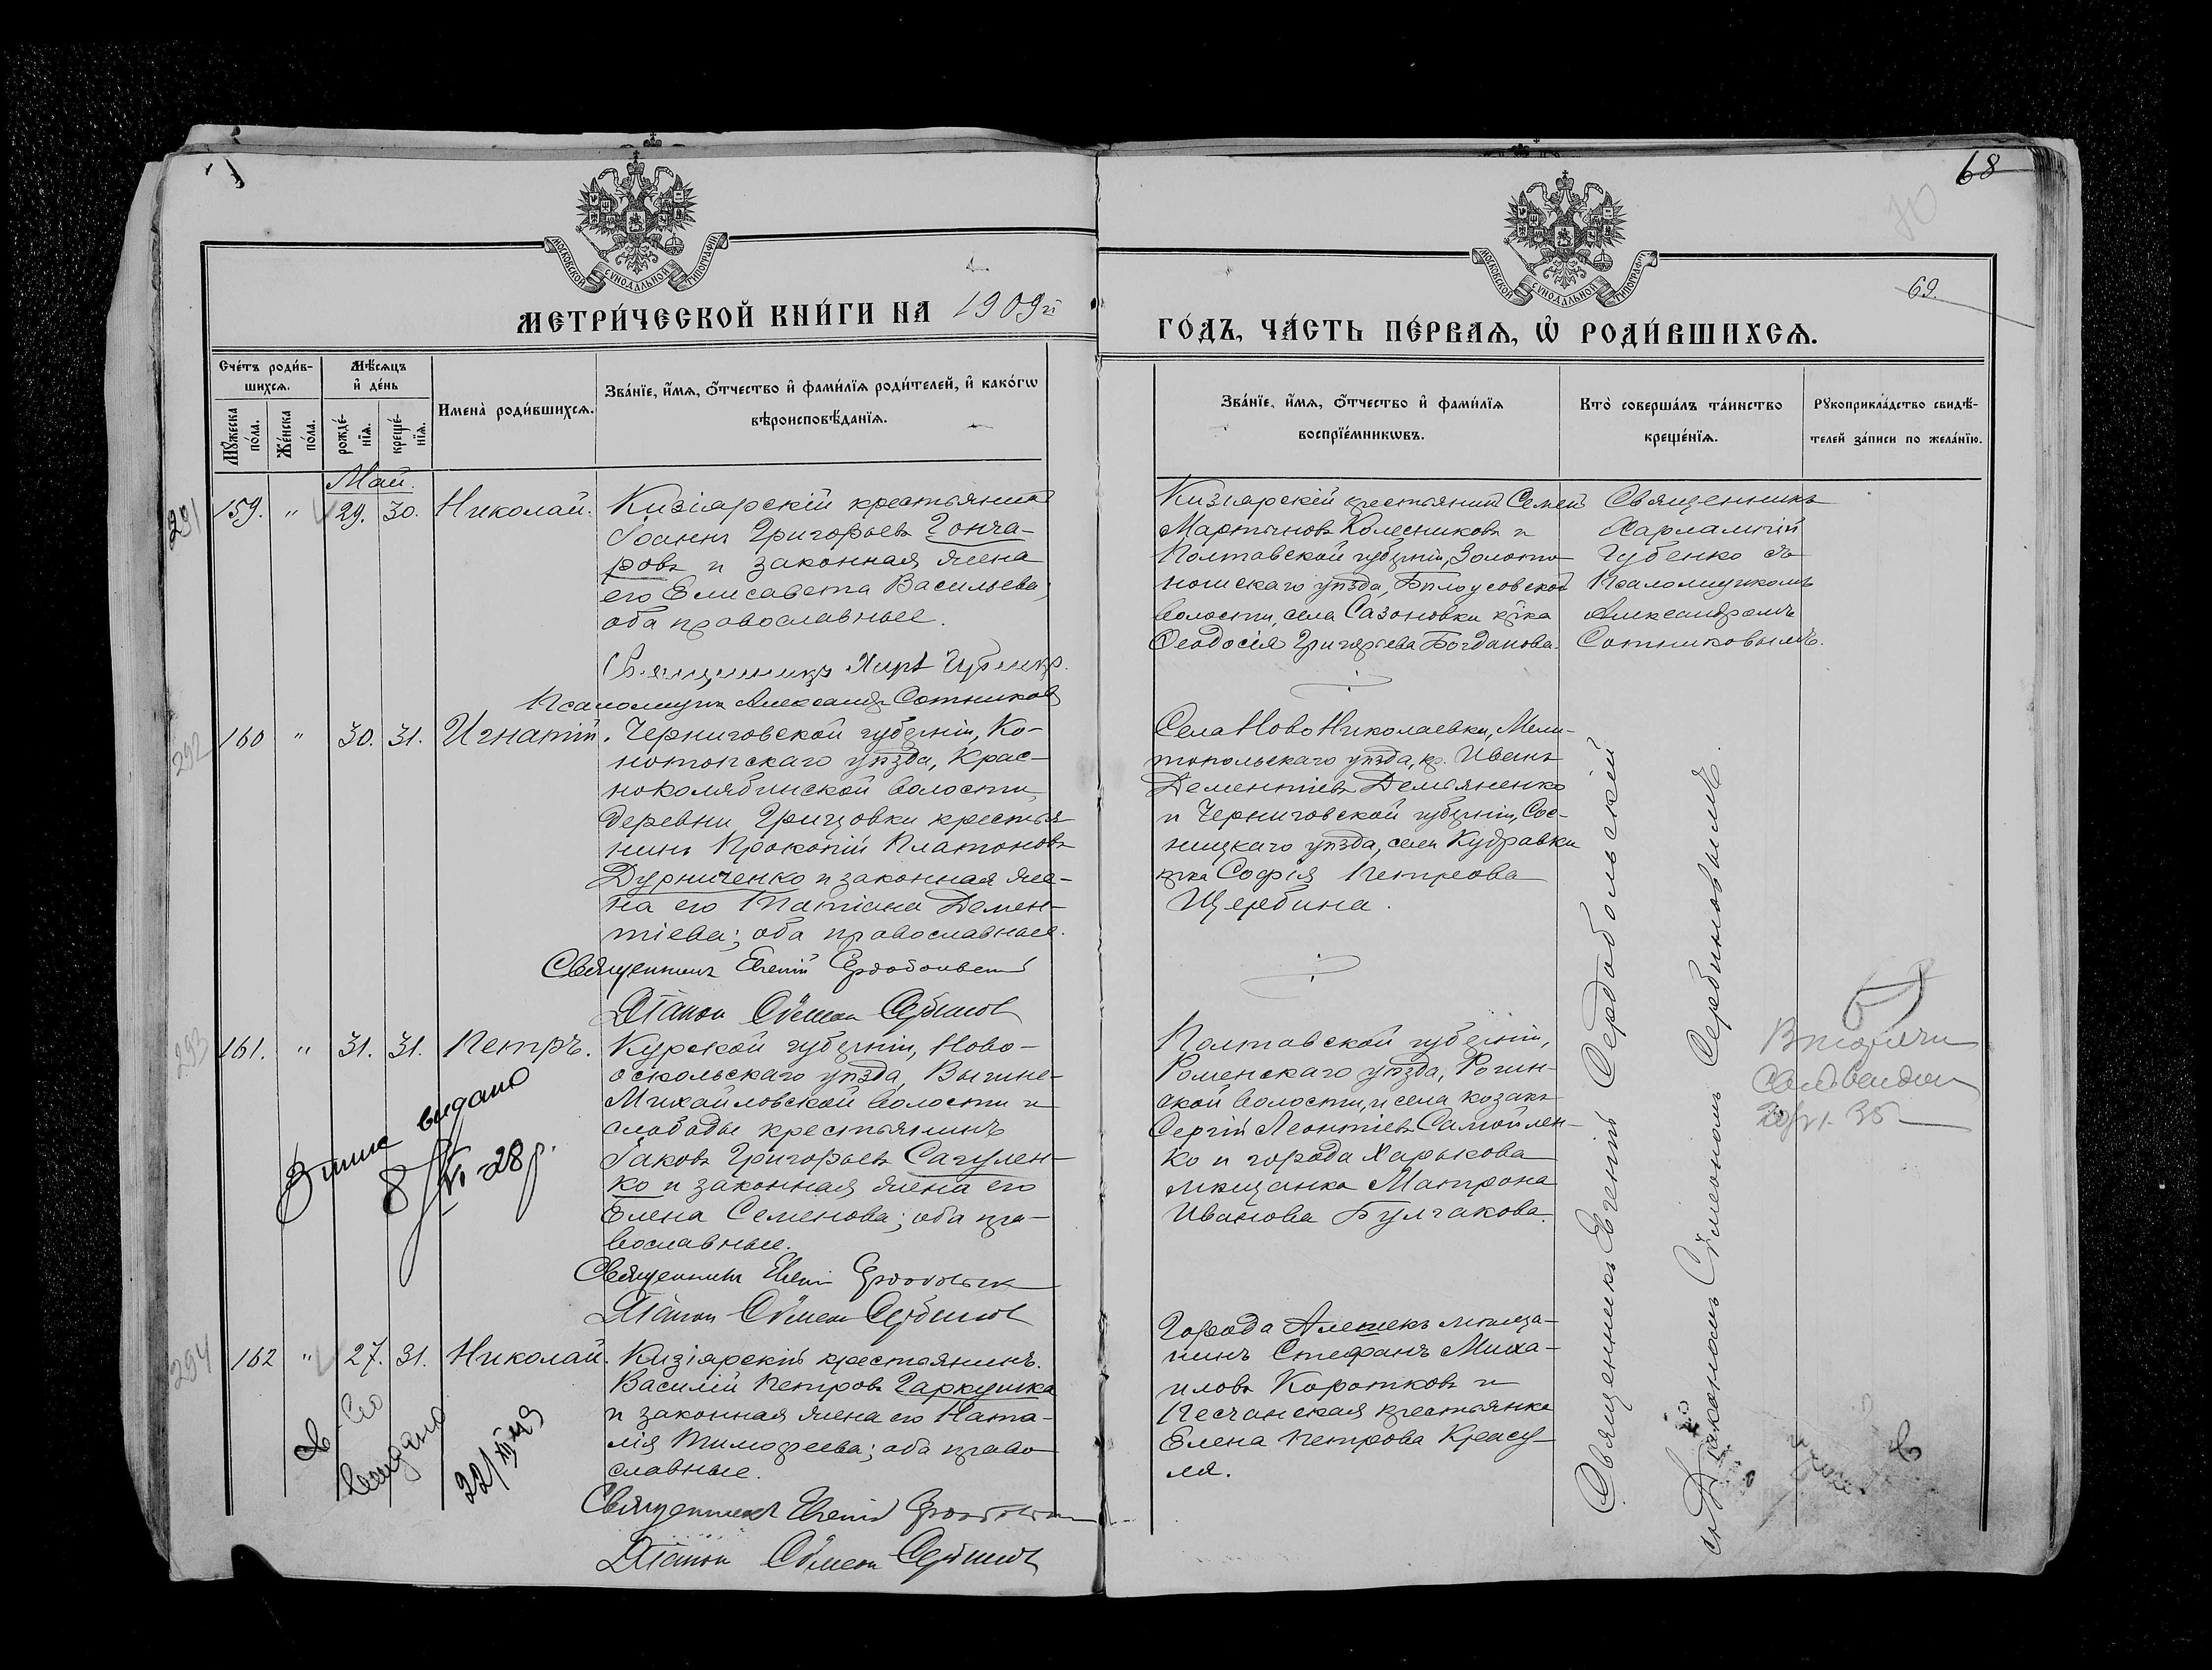 68
69.
70
МОСКОВСКОЙ СУНОДАЛЬНОЙ ТИПОГРАФІИ
МОСКОВСКОЙ СУНОДАЛЬНОЙ ТИПОГРАФІИ
МЕТРИ́ЧЕСКОЙ КНИ́ГИ НА 1909й
ГО́ДЪ, ЧА́СТЬ ПЕ́РВАѦ, Ѡ҆ РОДИ́ВШИХСѦ.
Сче́тъ роди́в-
шихсѧ.
Мꙋ́жеска по́ла.
Же́нска по́ла.
Мѣ́сѧцъ
и҆ де́нь
рожде́-
нїѧ.
креще́-
нїѧ.
Имена̀ роди́вшихсѧ.
Зва́нїе, и҆́мѧ, ѻ҆́тчество и҆ фами́лїѧ роди́телей, и҆ како́гѡ
вѣроисповѣ́данїѧ.
Зва́нїе, и҆́мѧ, ѻ҆́тчество и҆ фами́лїѧ
воспрїе́мникѡвъ.
Кто̀ соверша́лъ та́инство
креще́нїѧ.
Рꙋкоприкла́дство свидѣ́-
телей за́писи по жела́нїю.
Май.
291
159. " 29. 30. Николай.
Кизіярскій крестьянинъ
Іоаннъ Григорьевъ Гонча-
ровъ и законная жена
его Елисавета Васильева,
оба православные.
Псаломщик Александр Сотников
Кизіярскій крестьянинъ Семен
Мартыновъ Колесниковъ и
Полтавской губерніи, Золото-
ношскаго уѣзда, Бѣлоусовской
волости, села Сазоновки кр҃ка
Ѳеодосія Григорьева Богданова.
Священникъ
Харлампій
Губенко съ
Псаломщикомъ
Александромъ
Сотниковымъ.
292
160 " 30. 31. Игнатій.
Черниговской губерніи, Ко-
нотопскаго уѣзда, Крас-
ноколябинской волости,
деревни Грицовки крестья-
нинъ Прокопій Платоновъ
Дурниченко и законная же-
на его Татіана Демен-
тіева; оба православные.
Священникъ Евгеній Сердобольскій
Діакон Сѵмеон Сербинов
Села НовоНиколаевки, Мели-
топольскаго уѣзда, кр. Иванъ
Дементіевъ Демьяненко
и Черниговской губерніи, Сос-
ницкаго уѣзда, села Кудравки
кр҃ка Софія Петрова
Щербина.
293
161. " 31. 31. Петръ.
Курской губерніи, Ново-
оскольскаго уѣзда,
Михайловской волости и
слободы крестьянинъ
Іаковъ Григорьевъ Сагулен-
ко и законная жена его
Елена Семенова; оба пра-
вославные.
Священникъ Евгеній Сердобольскій
Діакон Сѵмеон Сербинов
видано
8/VI-28 р.
Полтавской губерніи,
Роменскаго уѣзда, Рогин-
ской волости, и села козакъ
Сергій Леонтіевъ Самойлен-
ко и города Харькова
мѣщанка Матрона
Иванова Булгакова.
294
162 " 27. 31. Николай.
Кизіярскій крестьянинъ.
Василій Петровъ Гаркушка
и законная жена его Ната-
лія Тимофеева; оба право
славные.
Священникъ Евгеній Сердобольскій
Діакон Сѵмеон Сербинов
Города Алешекъ мѣща-
нинъ Стефанъ Миха-
иловъ Коротковъ и
Песчанская крестьянка
Елена Петрова Красу-
ля.
Священникъ Евгеній Сердобольскій
съ Діакономъ Сѵмеономъ Сербиновымъ.